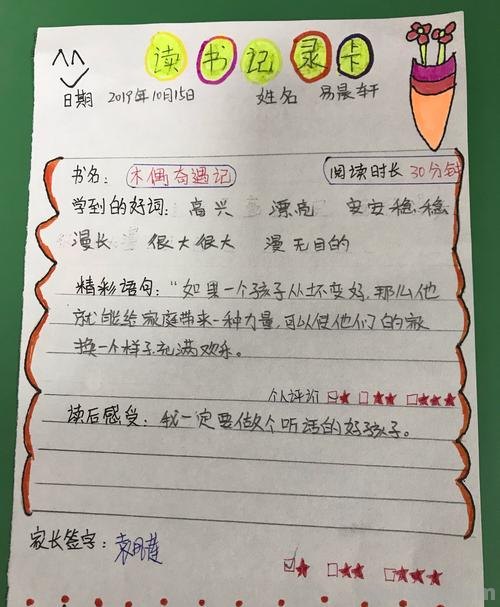 读书记录卡
日期 2019年10月15日 姓名 易晨轩
书名: 木偶奇遇记 阅读时长 30分钟
学到的好词: 高兴 漂亮 安安稳稳
漫长 很大很大 漫无目的
精彩语句:“如果一个孩子从坏变好,那么他
就能给家庭带来一种力量,可以使他们的家
换一个样子,充满欢乐。
个人评价 ☑★ □★★ □★★★
读后感受: 我一定要做个听话的好孩子。
家长签字:
☑★ □★★ □★★★